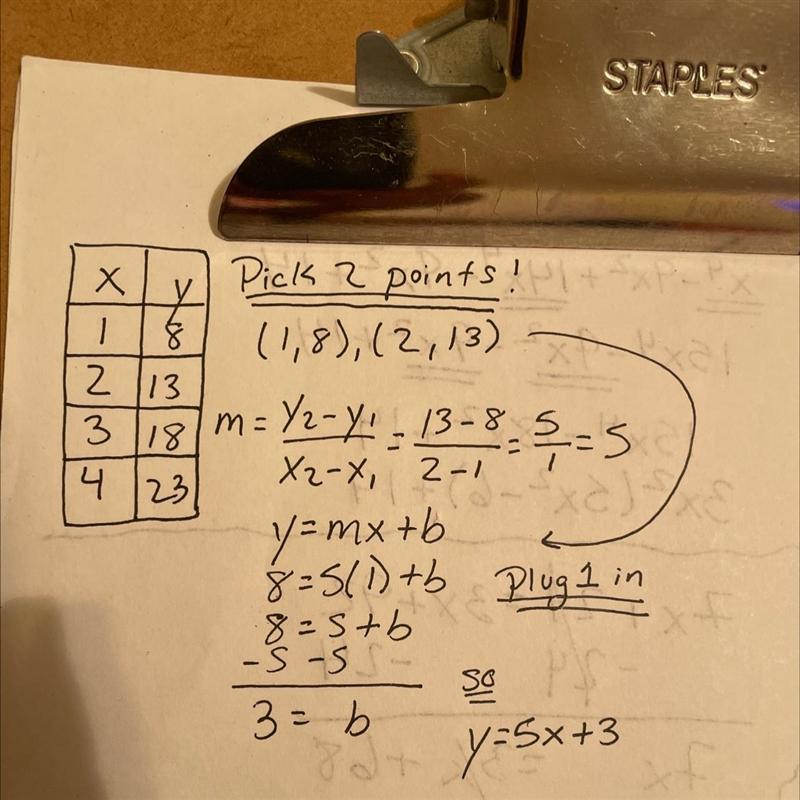 STAPLES
x y
1 8
2 13
3 18
4 23
Pick 2 points!
(1,8),(2,13)
m = y₂-y₁/x₂-x₁ = 13-8/2-1 = 5/1 = 5
y=mx+b
8=5(1)+b
Plug 1 in
8=5+b
-5 -5
3= b
so
y=5x+3